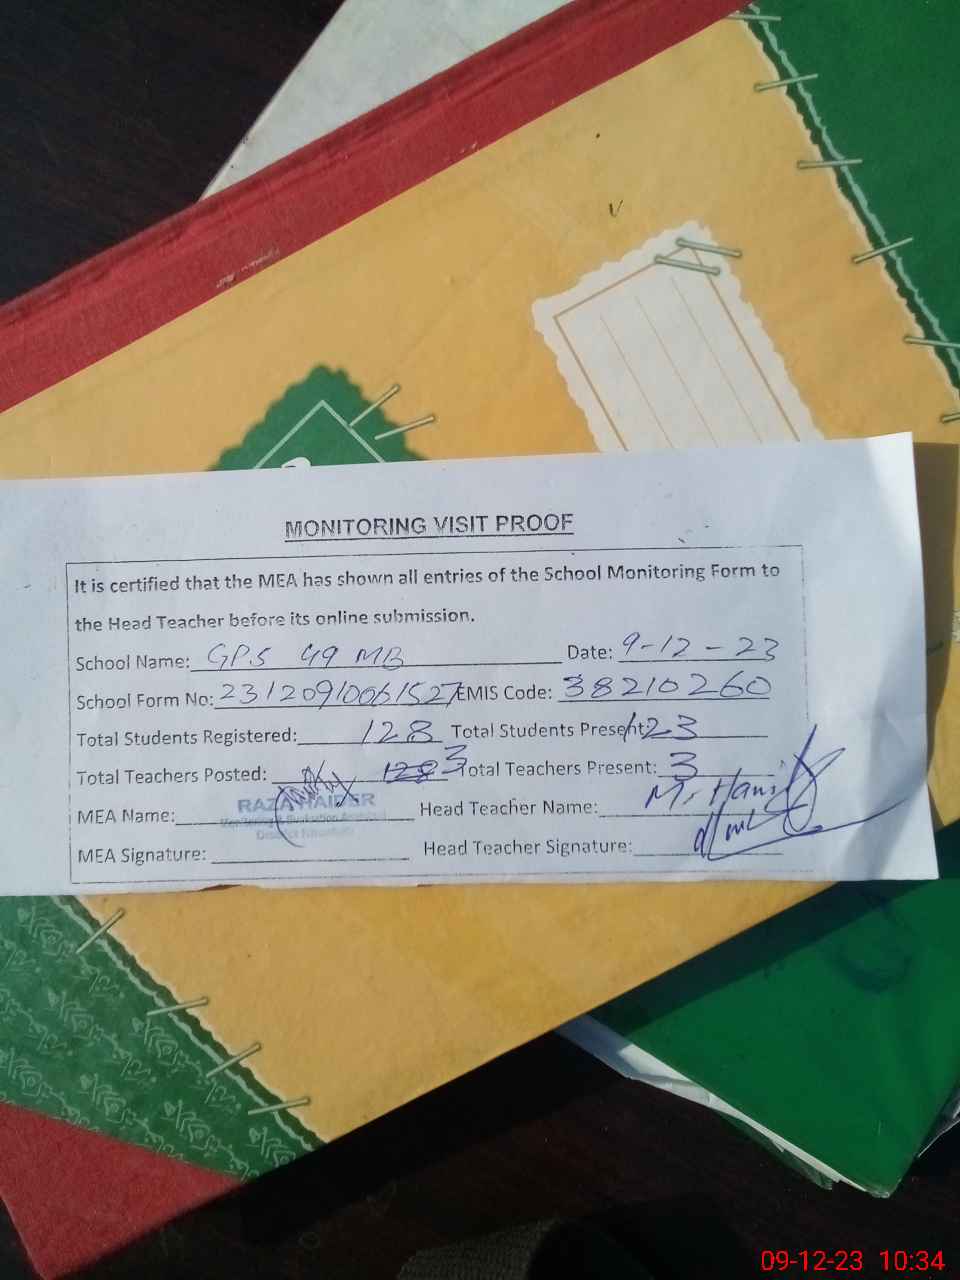 MONITORING VISIT PROOF
It is certified that the MEA has shown all entries of the School Monitoring Form to
the Head Teacher before its online submission.
School Name: GPS 49 MB Date: 9-12-23
School Form No: 23120910061527 EMIS Code: 38210260
Total Students Registered: 128 Total Students Present: 123
Total Teachers Posted: 128 3 Total Teachers Present: 3
RAZA HAIDER
MEA Name: Head Teacher Name: M.
Monitoring & Evaluation
District
MEA Signature: Head Teacher Signature:
09-12-23 10:34